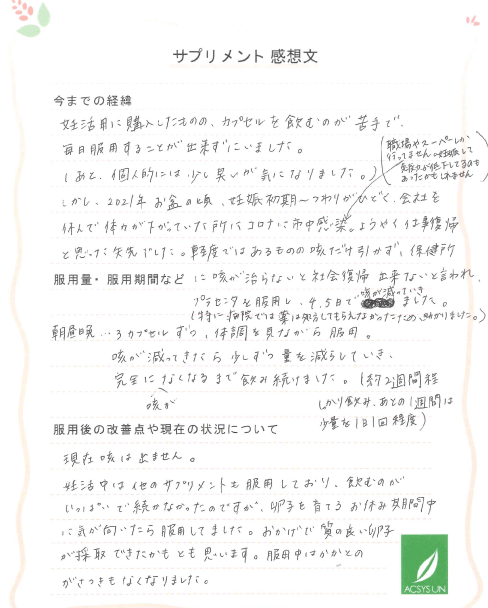 サプリメント 感想文
今までの経緯
妊活用に購入したものの、カプセルを飲むのが苦手で、
毎日服用することが出来ずにいました。
(あと、個人的には少し臭いが気になりました。)
(職場やスーパーしか
行ってません。妊娠して
免疫力が低下してるのも
あったかもしれません)
しかし、2021年お盆の頃、妊娠初期〜つわりがひどく、会社を
休んで体力が下がっていた所にコロナに市中感染。ようやく仕事復帰
と思った矢先でした。軽度ではあるものの咳だけ引かず、保健所
服用量・服用期間など に咳が治らないと社会復帰出来ないと言われ、
プラセンタを服用し、4.5日で咳が減っていきました。
(特に病院では薬は処方してもらえなかったため、助かりました。)
朝昼晩…3カプセルずつ、体調を見ながら服用。
咳が減ってきたら少しずつ量を減らしていき、
完全になくなるまで飲み続けました。(約2週間程
咳が
しっかり飲み、あとの1週間は
少量を1日1回程度)
服用後の改善点や現在の状況について
現在咳は出ません。
妊活中は他のサプリメントも服用しており、飲むのが
いっぱいで続かなかったのですが、卵子を育てるお休み期間中
に気が向いたら服用してました。おかげで質の良い卵子
が採取できたかもとも思います。服用中はかかとの
がさつきもなくなりました。
ACSYSUN